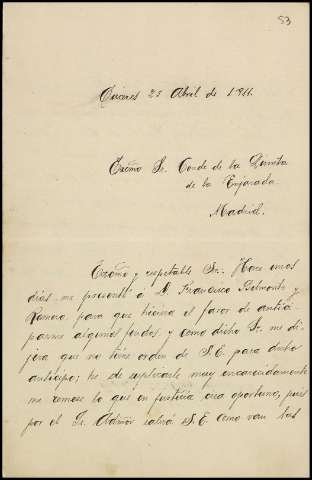 53
Cáceres 25 Abril de 1911.
Excmo Sr. Conde de la Quinta
de la Enjarada.
Madrid.
Excmo y respetable Sr. Hace unos
dias me presenté á D. Francisco Belmonte y
para que hiciera el favor de antici-
parme algunos fondos y como dicho Sr. me di-
jera que no tiene orden de S. E. para dicho
anticipo; he de suplicarle muy encarecidamente
me remese lo que en justicia crea oportuno, pues
por el Sr. Admor sabrá S. E. como van las